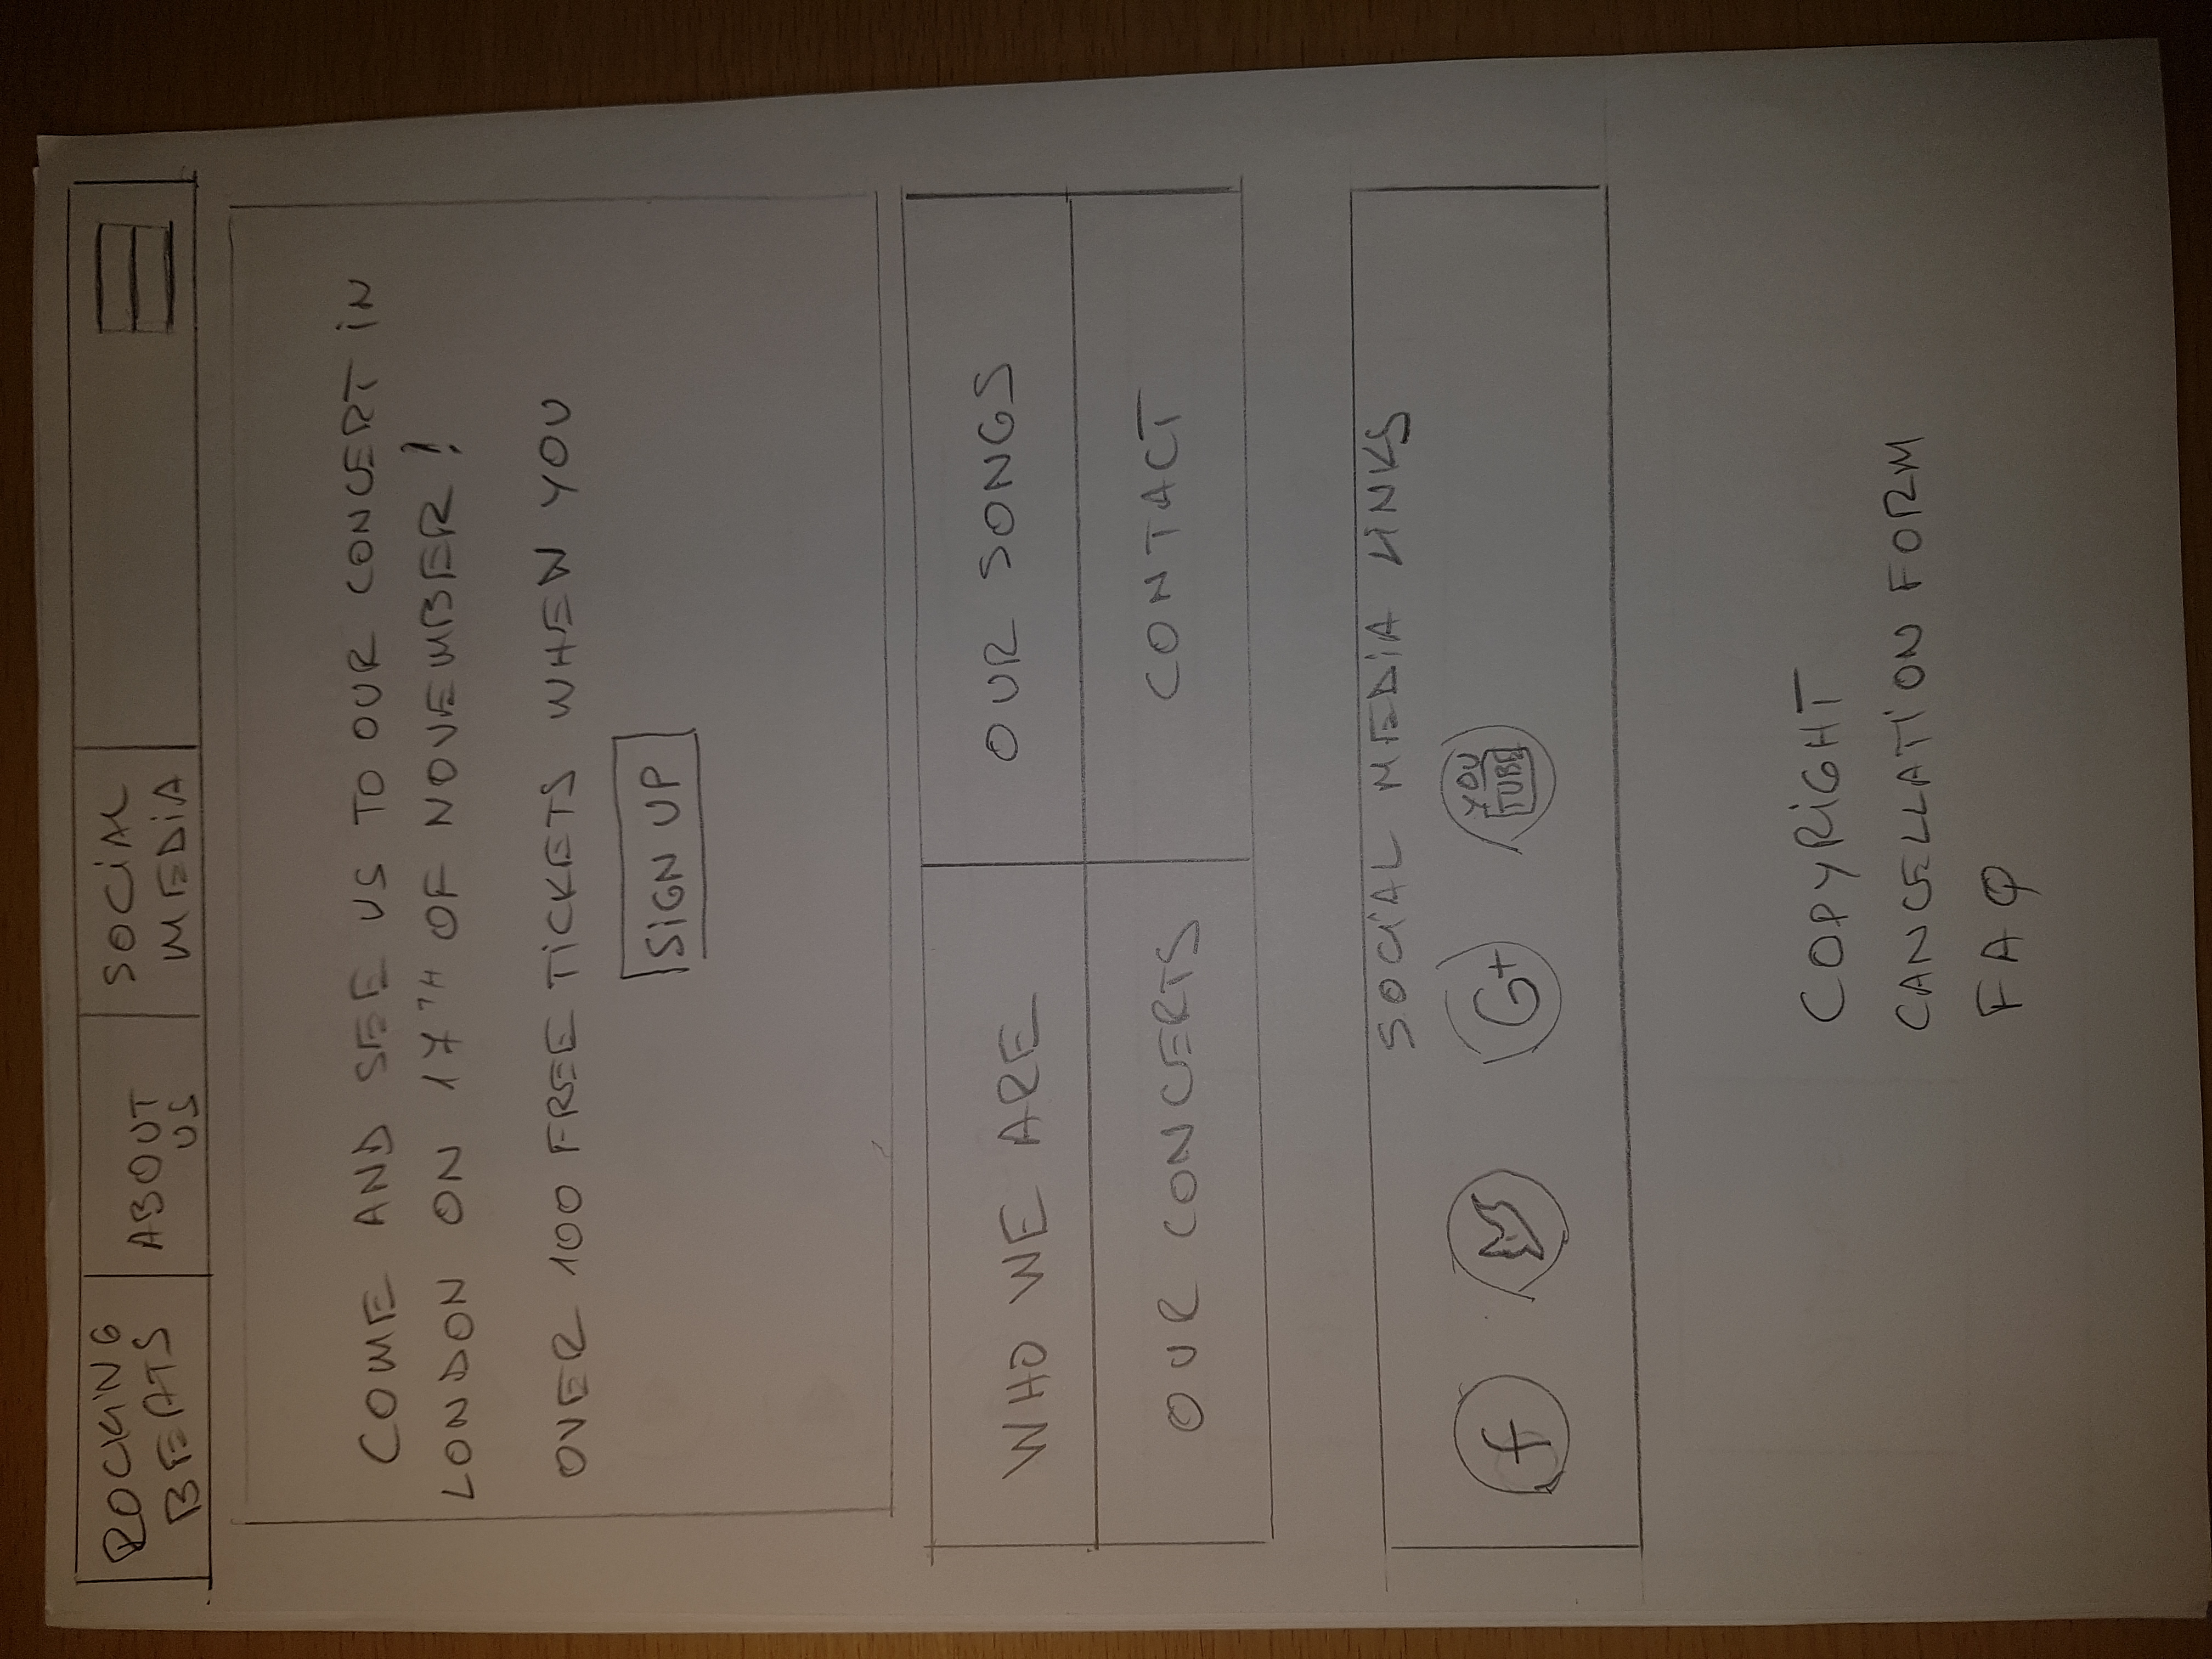 ROCKING
BEATS
ABOUT
US
SOCIAL
MEDIA
COME AND SEE US TO OUR CONCERT IN
LONDON ON 17TH OF NOVEMBER!
OVER 100 FREE TICKETS WHEN YOU
SIGN UP
WHO WE ARE
OUR SONGS
OUR CONCERTS
CONTACT
SOCIAL MEDIA LINKS
f
G+
YOU
TUBE
COPYRIGHT
CANCELLATION FORM
FAQ